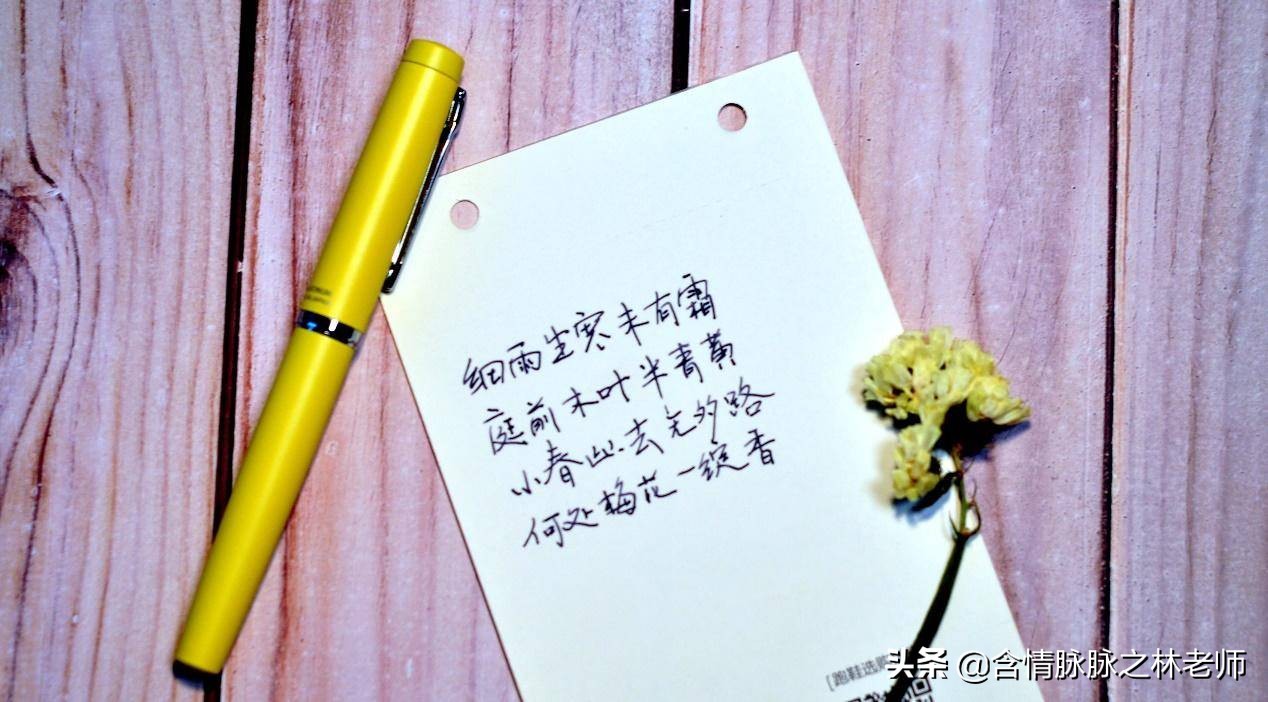 细雨生寒未有霜
庭前木叶半青黄
小春此去无多路
何处梅花一绽香
[跑鞋选
头条 @含情脉脉之林老师